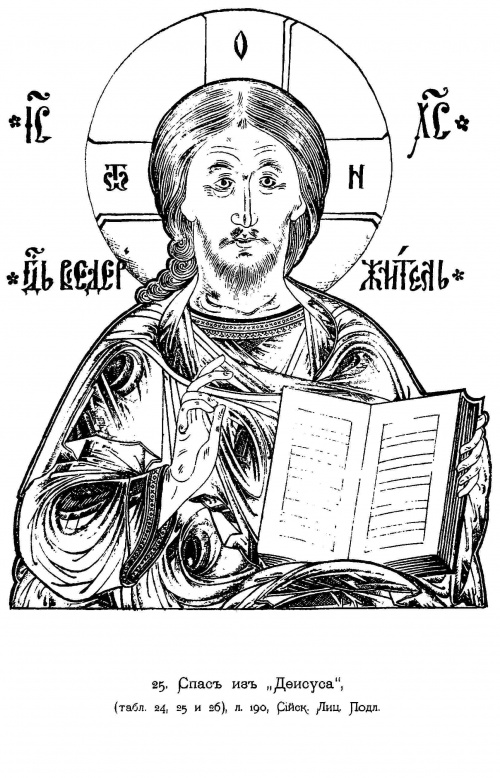 О
*І҃С Х҃С*
Ѿ Н
*Гдⷭ҇ь ВСЕДЕР ЖИ́ТЕЛЬ*
25. Спасъ изъ „Деисуса“,
(табл. 24, 25 и 26), л. 190, Сійск. Лиц. Подл.